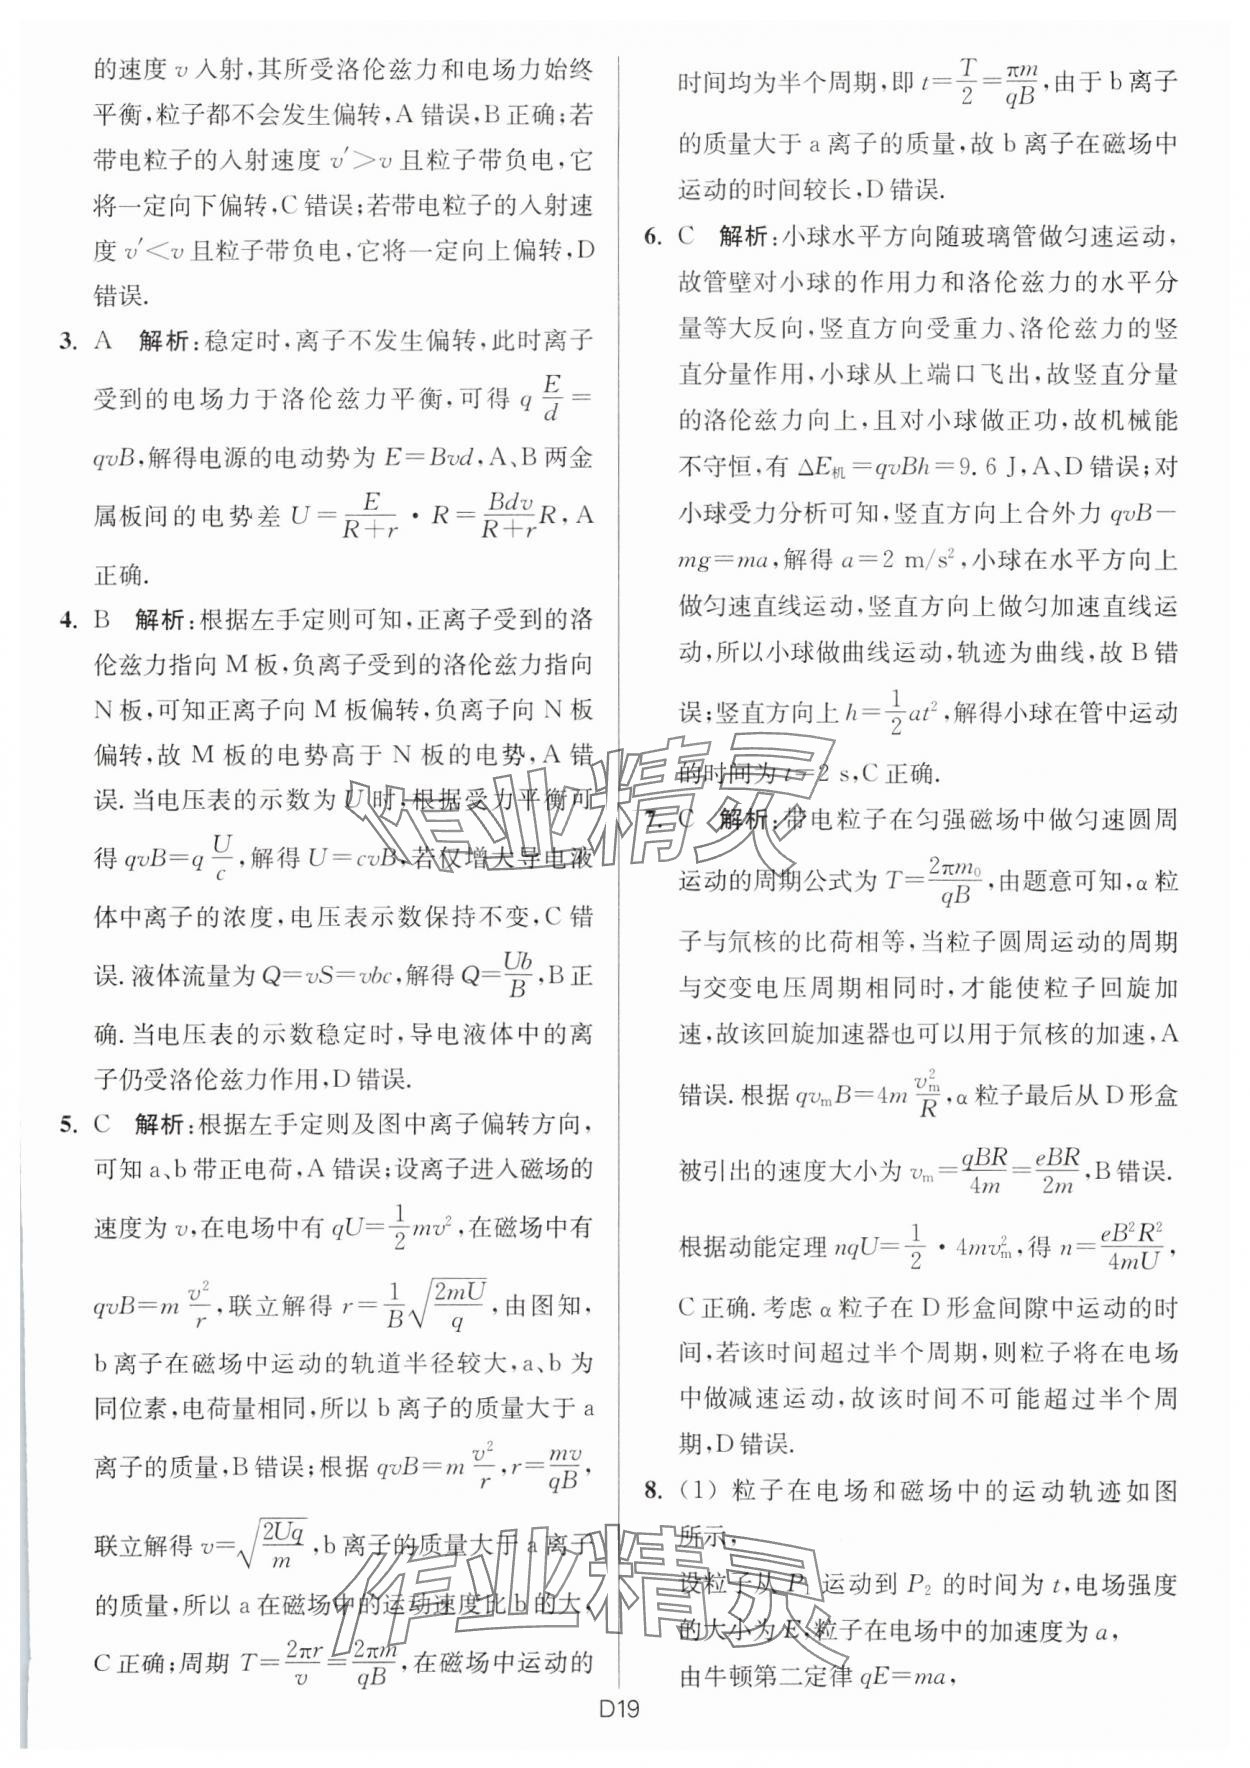 的速度 v 入射,其所受洛伦兹力和电场力始终
平衡,粒子都不会发生偏转,A 错误,B 正确;若
带电粒子的入射速度 v′>v 且粒子带负电,它
将一定向下偏转,C 错误;若带电粒子的入射速
度 v′<v 且粒子带负电,它将一定向上偏转,D
错误.
3. A 解析:稳定时,离子不发生偏转,此时离子
受到的电场力于洛伦兹力平衡,可得 q E/d =
qvB,解得电源的电动势为 E=Bvd,A、B 两金
属板间的电势差 U= E/(R+r) · R= Bdv/(R+r) R,A
正确.
4. B 解析:根据左手定则可知,正离子受到的洛
伦兹力指向 M 板,负离子受到的洛伦兹力指向
N 板,可知正离子向 M 板偏转,负离子向 N 板
偏转,故 M 板的电势高于 N 板的电势,A 错
误.当电压表的示数为 U 时,根据受力平衡可
得 qvB=q U/c,解得 U=cvB,若仅增大导电液
体中离子的浓度,电压表示数保持不变,C 错
误.液体流量为 Q=vS=vbc,解得 Q= Ub/B,B 正
确.当电压表的示数稳定时,导电液体中的离
子仍受洛伦兹力作用,D 错误.
5. C 解析:根据左手定则及图中离子偏转方向,
可知 a、b 带正电荷,A 错误;设离子进入磁场的
速度为 v,在电场中有 qU= 1/2 mv²,在磁场中有
qvB=m v²/r,联立解得 r= 1/B √(2mU/q),由图知,
b 离子在磁场中运动的轨道半径较大,a、b 为
同位素,电荷量相同,所以 b 离子的质量大于 a
离子的质量,B 错误;根据 qvB=m v²/r,r= mv/qB,
联立解得 v=√(2Uq/m),b 离子的质量大于 a 离子
的质量,所以 a 在磁场中的运动速度比 b 的大,
C 正确;周期 T= 2πr/v = 2πm/qB,在磁场中运动的
时间均为半个周期,即 t= T/2 = πm/qB,由于 b 离子
的质量大于 a 离子的质量,故 b 离子在磁场中
运动的时间较长,D 错误.
6. C 解析:小球水平方向随玻璃管做匀速运动,
故管壁对小球的作用力和洛伦兹力的水平分
量等大反向,竖直方向受重力、洛伦兹力的竖
直分量作用,小球从上端口飞出,故竖直分量
的洛伦兹力向上,且对小球做正功,故机械能
不守恒,有 ΔE机=qvBh=9.6 J,A、D 错误;对
小球受力分析可知,竖直方向上合外力 qvB−
mg=ma,解得 a=2 m/s²,小球在水平方向上
做匀速直线运动,竖直方向上做匀加速直线运
动,所以小球做曲线运动,轨迹为曲线,故 B 错
误;竖直方向上 h= 1/2 at²,解得小球在管中运动
的时间为 t=2 s,C 正确.
7. C 解析:带电粒子在匀强磁场中做匀速圆周
运动的周期公式为 T= 2πm₀/qB,由题意可知,α 粒
子与氘核的比荷相等,当粒子圆周运动的周期
与交变电压周期相同时,才能使粒子回旋加
速,故该回旋加速器也可以用于氘核的加速,A
错误.根据 qvₘB=4m vₘ²/R,α 粒子最后从 D 形盒
被引出的速度大小为 vₘ= qBR/4m = eBR/2m,B 错误.
根据动能定理 nqU= 1/2 · 4mvₘ²,得 n= eB²R²/4mU,
C 正确.考虑 α 粒子在 D 形盒间隙中运动的时
间,若该时间超过半个周期,则粒子将在电场
中做减速运动,故该时间不可能超过半个周
期,D 错误.
8. (1) 粒子在电场和磁场中的运动轨迹如图
所示,
设粒子从 P₁ 运动到 P₂ 的时间为 t,电场强度
的大小为 E,粒子在电场中的加速度为 a,
由牛顿第二定律 qE=ma,
D19
作业精灵
作业精灵